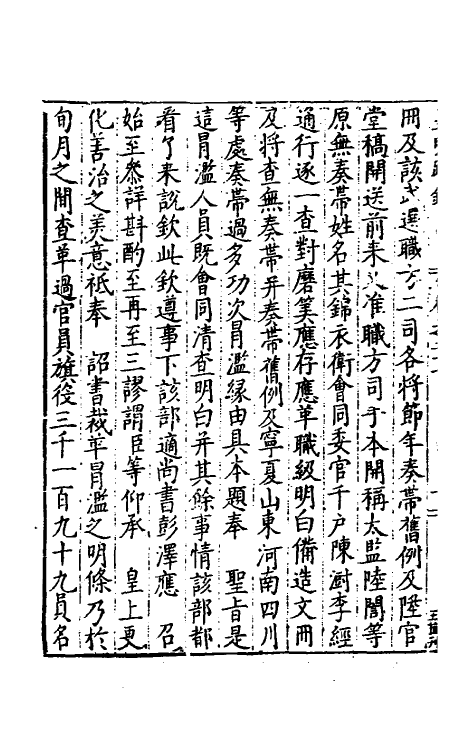 冊及該武選職方二司各將節年奏帶舊例及陞官
堂稿開送前來又准職方司手本開稱太監陸誾等
原無奏帶姓名其錦衣衛會同委官千戶陳㕑李經
通行逐一查對磨筭應存應革職級明白備造文冊
及將查無奏帶并奏帶舊例及寧夏山東河南四川
等處奏帶過多功次冐濫緣由具本題奉　聖旨是
這冐濫人員既會同清查明白并其餘事情該部都
看了來說欽此欽遵事下該部適尚書彭澤應　召
始至叅詳斟酌至再至三謬謂臣等仰承　皇上更
化善治之美意祗奉　詔書裁革冐濫之明條乃於
旬月之間查革過官員旗役三千一百九十九員名